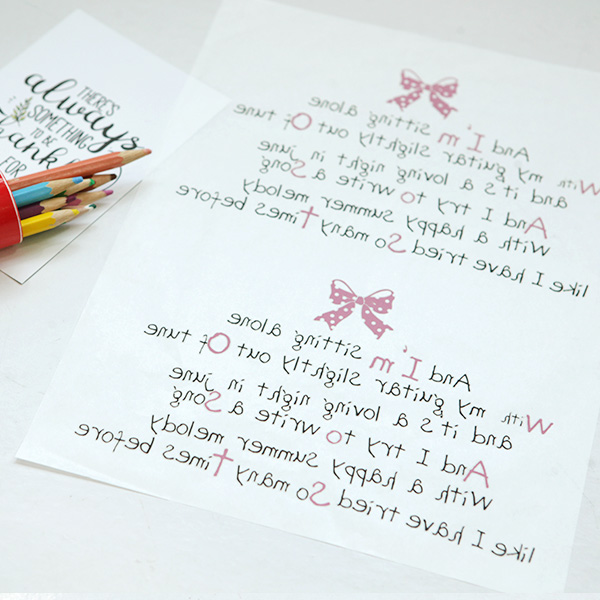 THERE'S
always
SOMETHING
TO BE
Thank
FOR
And I'm sitting alone
With my guitar slightly out Of tune
and it's a loving night in june
And I try to write a Song
With a happy summer melody
like I have tried So many Times before
And I'm sitting alone
With my guitar slightly out Of tune
and it's a loving night in june
And I try to write a Song
With a happy summer melody
like I have tried So many Times before